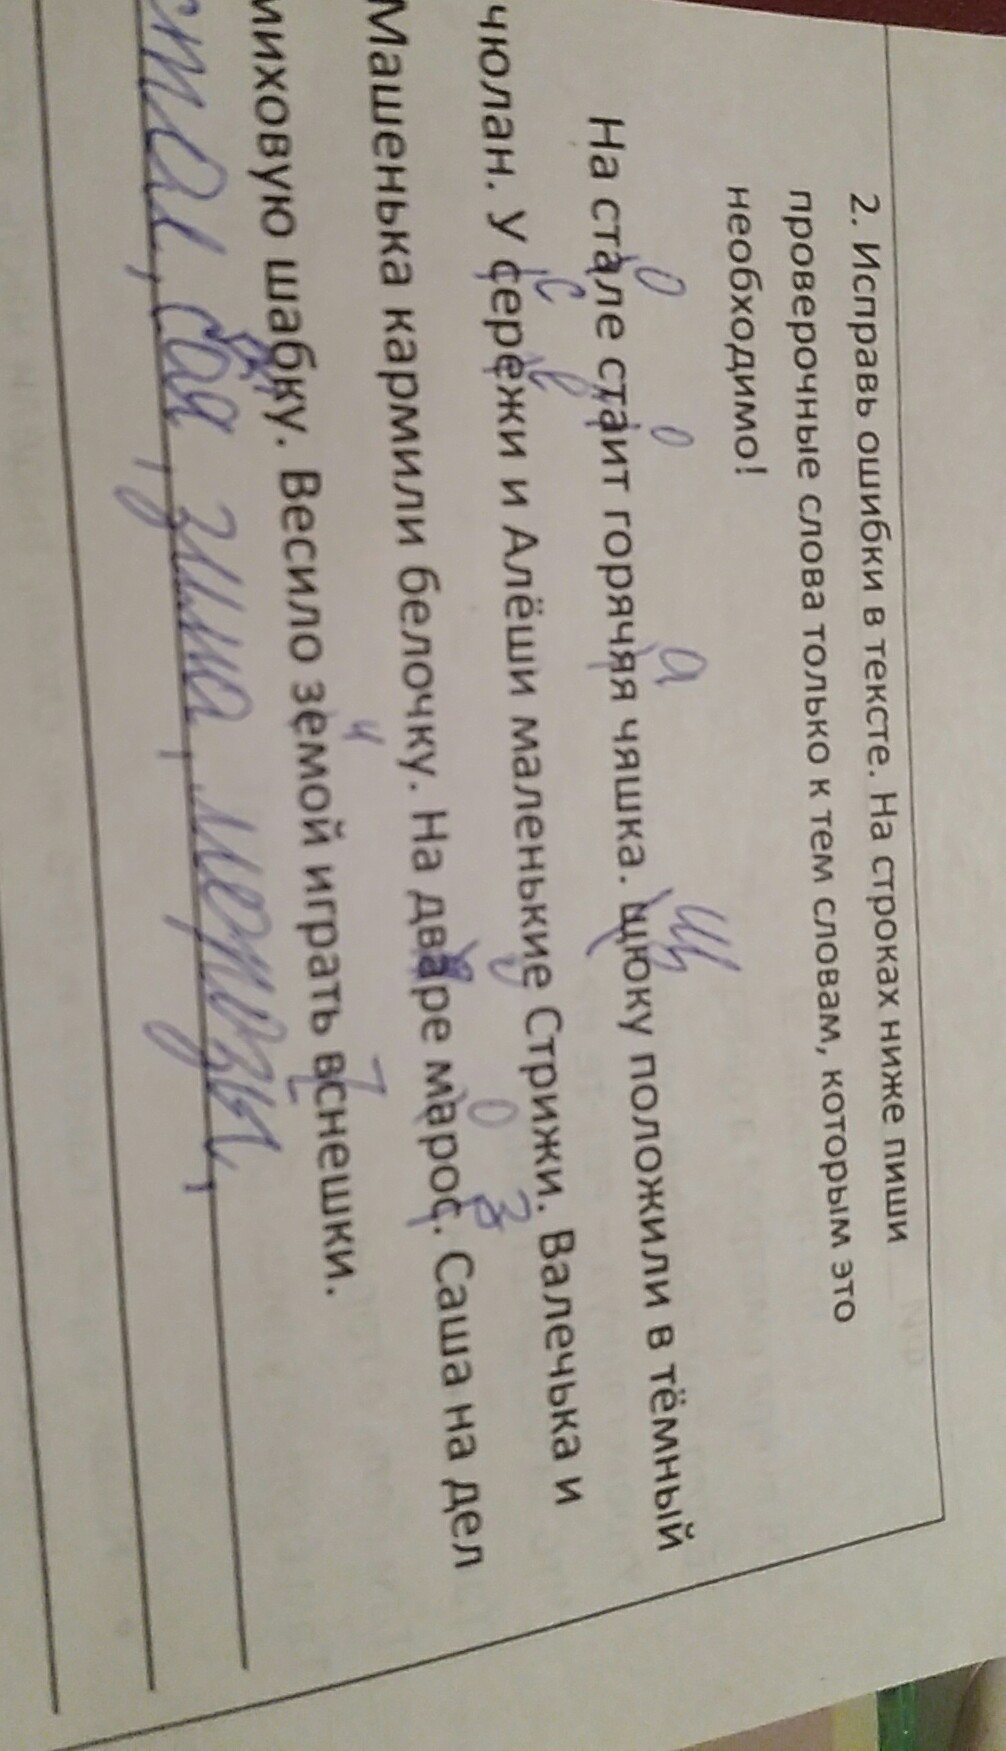 2. Исправь ошибки в тексте. На строках ниже пиши
проверочные слова только к тем словам, которым это
необходимо!
о о а Щ
На стале стаит горячяя чяшка. щюку положили в тёмный
С
чюлан. У сережи и Алёши маленькие Стрижи. Валечька и
о з
Машенька кармили белочку. На дваре марос. Саша на дел
и
миховую шабку. Весило земой играть вснешки.
зима,